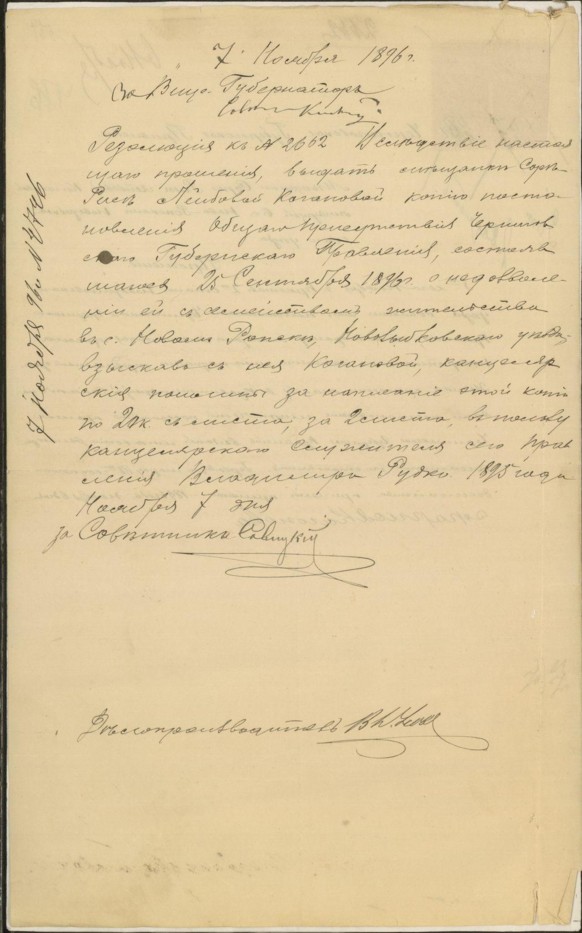 7 Ноября 1896 г.
За Вице-Губернатора
Резолюция къ № 2662 Вследствіе настоя
щаго прошенія, выдать мещанке Соре-
Рисе Лейбовой Кагановой копію поста-
новленія Общаго Присутствія Чернигов
скаго Губернскаго Правленія, состояв
шагося 25 Сентября 1896 г. о недозволе-
ніи ей съ семействомъ жительства
въ с. Новомъ Ропске, Новозыбковскаго уезда,
взыскавъ съ нея Кагановой, канцеляр
скія пошлины за написаніе этой копіи
по 20 к. съ листа, за 2 листа, въ пользу
канцелярскаго служителя сего Прав
ленія Владиміра Рудко. 1895 года
Ноября 7 дня
за Советника Савицкій
Делопроизводитель
7 Ноября 96 г. №